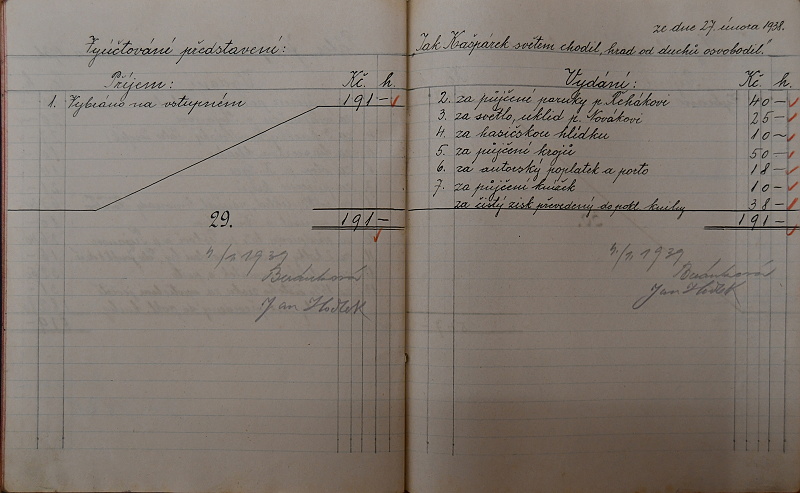 Vyúčtování představení:
Příjem: Kč. h.
1. Vybráno na vstupném 191 —
29. 191 —
1939
Jan Hodek
ze dne 27. února 1938.
„Jak Kašpárek světem chodil, hrad od duchů osvobodil."
Vydání: Kč. h.
2. za půjčené paruky p. Řehákovi 40 —
3. za světlo, úklid p. Novákovi 25 —
4. za hasičskou hlídku 10 —
5. za půjčení krojů 50 —
6. za autorský poplatek a porto 18 —
7. za půjčení knížek 10 —
za čistý zisk převedený do pokl. knihy 38 —
191 —
1939
Jan Hodek